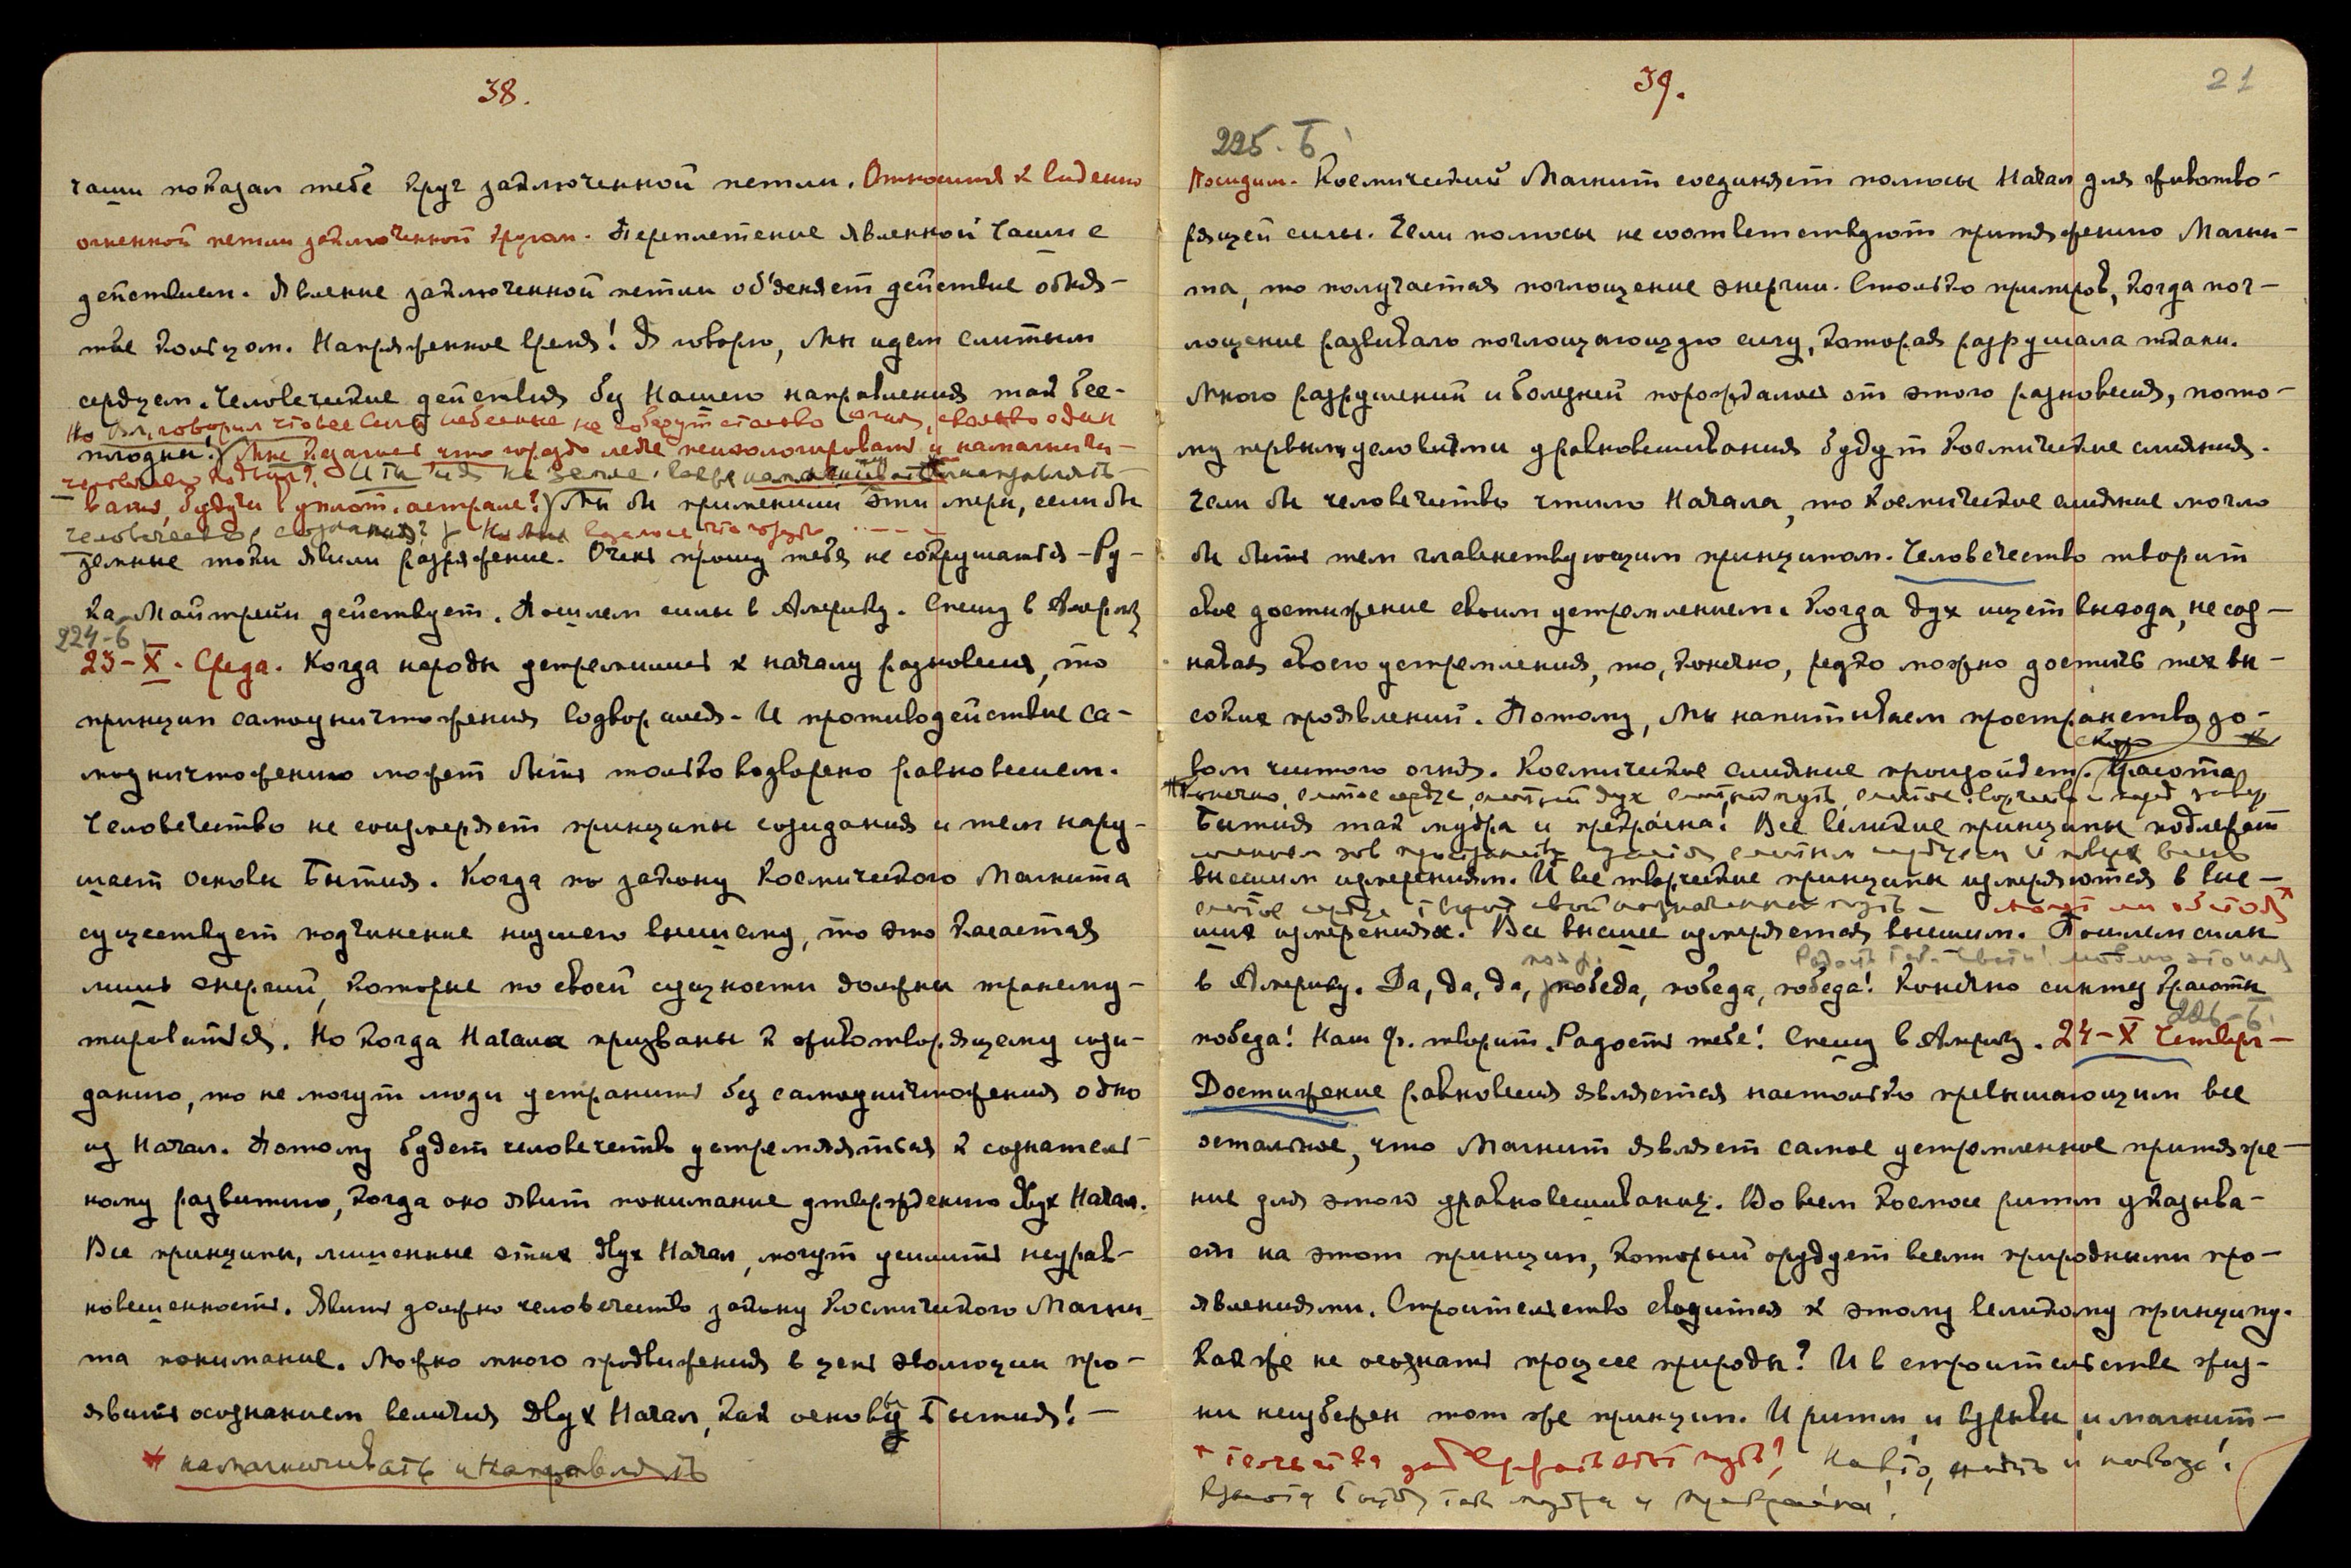 38.
чаши показал тебе круг заключенной петли. Относится к видению
огненной петли заключенной кругом. Переплетение явленной чаши с
действием. Явление заключенной петли об'деняет действие обня-
тие кольцом. Напряженное время! Я говорю, Мы идем слитым
сердцем. Человеческие действия без Нашего направления так бес-
Но Вл. говорил что все Силы небесные не соберут столько огня, сколько один
плодны! Мне казалось что гораздо легче психологировать и намагничи-
человек на земле
вать, будучи в уплот. астрале? Мы бы применили эти меры, если бы
человеческое сознание? Но мне казалось, что гораздо
земные токи явили разряжение. Очень прошу тебя не сокрушаться – Ру-
ка Майтрейи действует. Пошлем силы в Америку. Спешу в Америку
224-б.
23–X. Среда. Когда народы устремились к началу разновесия, то
принцип самоуничтожения водворился. И противодействие са-
моуничтожению может быть только водворено равновесием.
Человечество не соизмеряет принципы созидания и тем нару-
шает основы Бытия. Когда по закону Космического Магнита
существует подчинение низшего высшему, то это касается
лишь энергий, которые по своей сущности должны трансму-
тироваться. Но когда Начала призваны к животворящему сози-
данию, то не могут люди устранить без самоуничтожения одно
из Начал. Потому будет человечество устремляться к сознатель-
ному развитию, когда оно явит понимание утверждению двух Начал.
Все принципы, лишенные этих двух Начал, могут усилить неурав-
новешенность. Явить должно человечество закону Космического Магни-
та понимание. Можно много продвижения в цепи эволюции про-
явить осознанием величия двух Начал, как основу Бытия! –
* намагничивать и направлять
39.
21
225-Б
Посидим. Космический Магнит соединяет полюсы Начал для животво-
рящей силы. Если полюсы не соответствуют притяжению Магни-
та, то получается поглощение энергии. Столько примеров, когда пог-
лощение развивало поглощающую силу, которая разрушала ткани.
Много разрушений и болезней порождалось от этого разновесия, пото-
му первыми условиями уравновешивания будут космические слияния.
Если бы человечество чтило Начала, то космическое слияние могло
бы быть тем главенствующим принципом. Человечество творит
свое достижение своим устремлением. Когда дух ищет выхода, не соз-
навая своего устремления, то, конечно, редко можно достичь тех вы-
соких проявлений. Потому, Мы напитываем пространство зо-
скоро
вом чистого огня. Космическое слияние произойдет. Красота
Конечно, слитое сердце, слитный дух, слитный путь, слитое
Бытия так мудра и прекрасна! Все великие принципы подлежат
слитным сердцем и поверх всего
высшим измерениям. И все творческие принципы измеряются в выс-
слитое сердце творит свой назначенный путь – может ли
ших измерениях. Все высшее измеряется высшим. Пошлем силы
в Америку. Да, да, да, победа, победа, победа! Конечно синтез красоты
226-Б
победа! Наш Ф. творит. Радость тебе! Спешу в Америку. 24–X Четверг –
Достижение равновесия является настолько превышающим все
остальное, что Магнит являет самое устремленное притяже-
ние для этого уравновешивания. Во всем Космосе ритм указыва-
ет на этот принцип, который орудует всеми природными про-
явлениями. Строительство сводится к этому великому принципу.
Как же не осознать процесс природы? И в строительстве жиз-
ни неизбежен тот же принцип. И ритм, и взрывы, и магнит-
путь?
Красота Бытия так мудра и прекрасна!